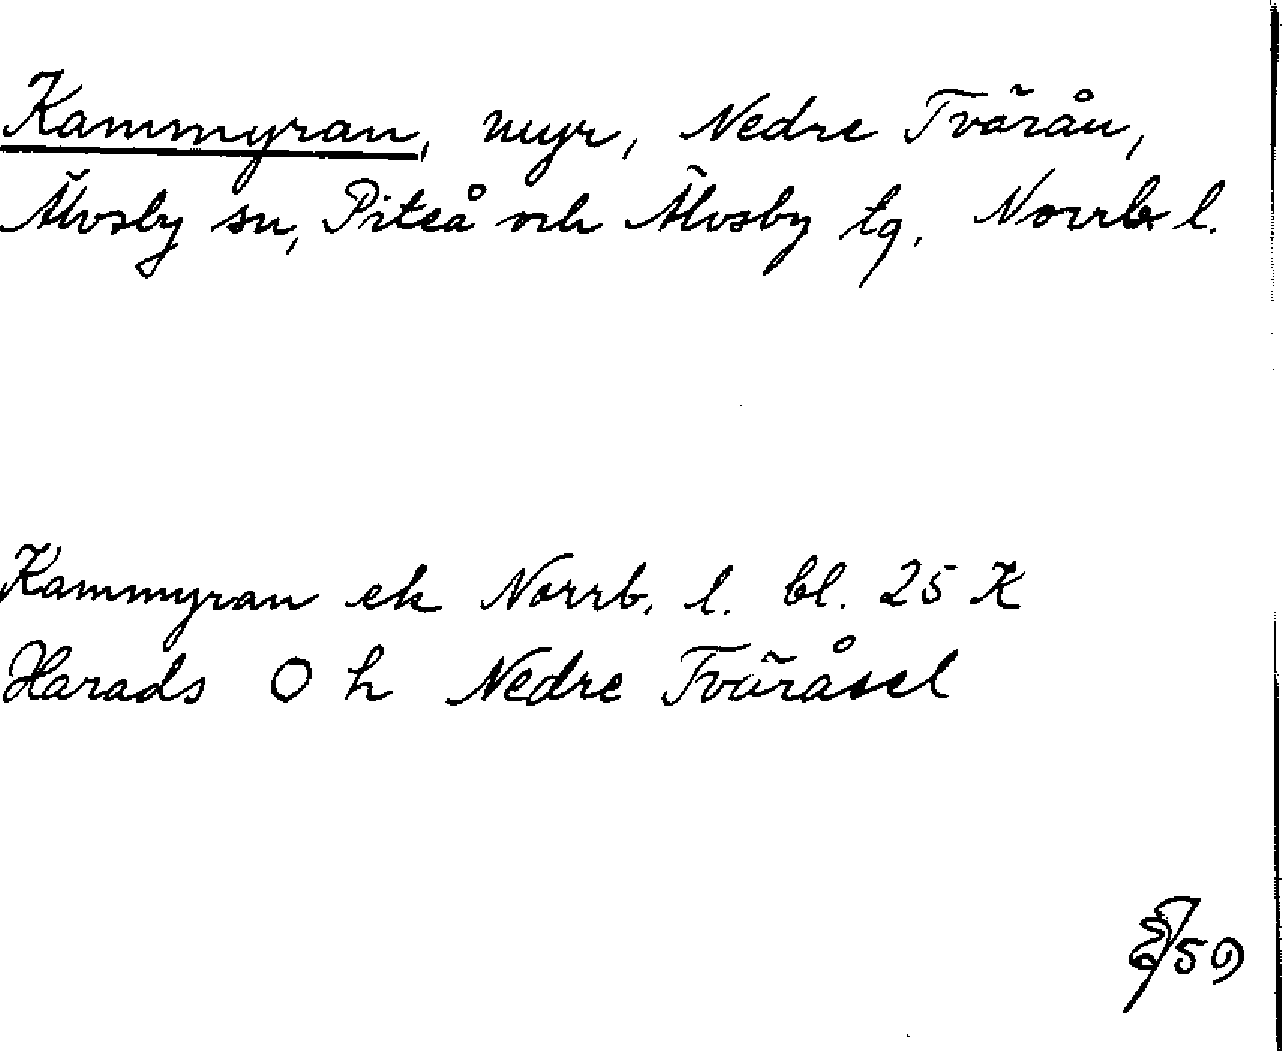 Kammyran, myr, Nedre Tvärån,
Älvsby sn, Piteå och Älvsby tg, Norrb l.
Kammyran ek Norrb. l. bl. 25 X
Harads O h Nedre Tväråsel
/59